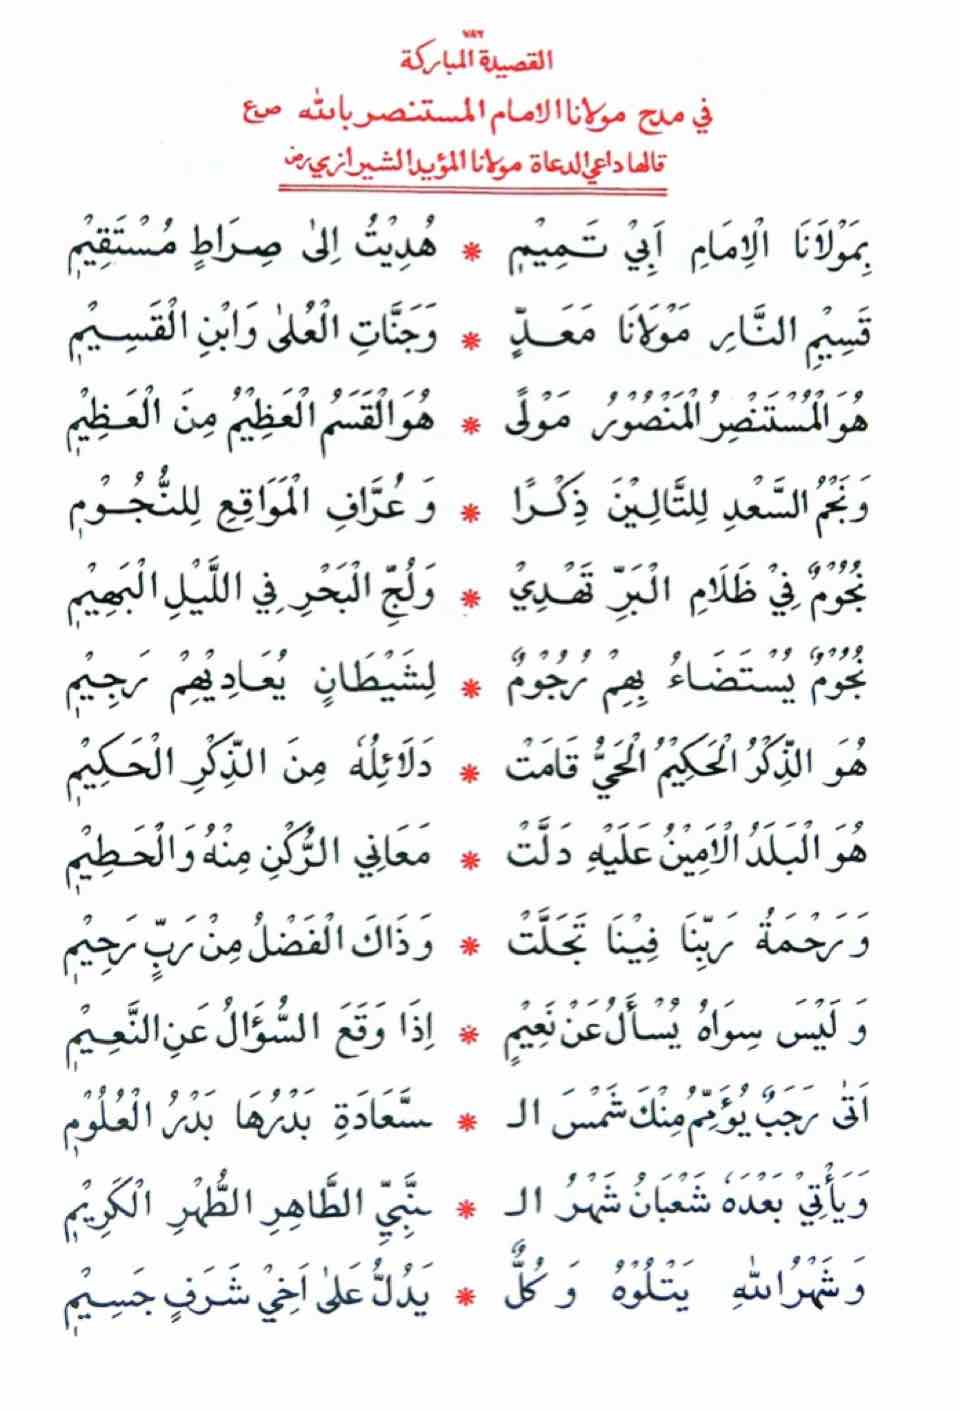 ٧٨٦
القصيدة المباركة
في مدح مولانا الامام المستنصر بالله صع
قالها داعي الدعاة مولانا المؤيد الشيرازي رض
بِمَوْلَانَا الْاِمَامِ اَبِيْ تَمِيْمٖ * هُدِيْتُ اِلىٰ صِرَاطٍ مُسْتَقِيْمٖ
قَسِيْمِ النَّارِ مَوْلَانَا مَعَدٍّ * وَجَنَّاتِ الْعُلىٰ وَابْنِ الْقَسِيْمٖ
هُوَ الْمُسْتَنْصِرُ الْمَنْصُوْرُ مَوْلًى * هُوَ الْقَسَمُ الْعَظِيْمُ مِنَ الْعَظِيْمٖ
وَنَجْمُ السَّعْدِ لِلتَّالِيْنَ ذِكْرًا * وَعُرَّافِ الْمَوَاقِعِ لِلنُّجُوْمٖ
نُجُوْمٌ فِيْ ظَلَامِ الْبَرِّ تَهْدِيْ * وَلُجِّ الْبَحْرِ فِي اللَّيْلِ الْبَهِيْمٖ
نُجُوْمٌ يُسْتَضَاءُ بِهِمْ رُجُوْمٌ * لِشَيْطَانٍ يُعَادِيْهِمْ رَجِيْمٖ
هُوَ الذِّكْرُ الْحَكِيْمُ الْحَيُّ قَامَتْ * دَلَائِلُهٗ مِنَ الذِّكْرِ الْحَكِيْمٖ
هُوَ الْبَلَدُ الْاَمِيْنُ عَلَيْهِ دَلَّتْ * مَعَانِي الرُّكْنِ مِنْهُ وَالْحَطِيْمٖ
وَرَحْمَةُ رَبِّنَا فِيْنَا تَجَلَّتْ * وَذَاكَ الْفَضْلُ مِنْ رَبٍّ رَحِيْمٖ
وَلَيْسَ سِوَاهُ يُسْأَلُ عَنْ نَعِيْمٍ * اِذَا وَقَعَ السُّؤَالُ عَنِ النَّعِيْمٖ
اَتٰى رَجَبٌ يُؤَمِّمُ مِنْكَ شَمْسَ الـ * ـسَّعَادَةِ بَدْرُهَا بَدْرُ الْعُلُوْمٖ
وَيَأْتِيْ بَعْدَهٗ شَعْبَانُ شَهْرُ الـ * ـنَّبِيِّ الطَّاهِرِ الطُّهْرِ الْكَرِيْمٖ
وَشَهْرُ اللهِ يَتْلُوْهُ وَكُلٌّ * يَدُلُّ عَلىٰ اَخِيْ شَرَفٍ جَسِيْمٖ